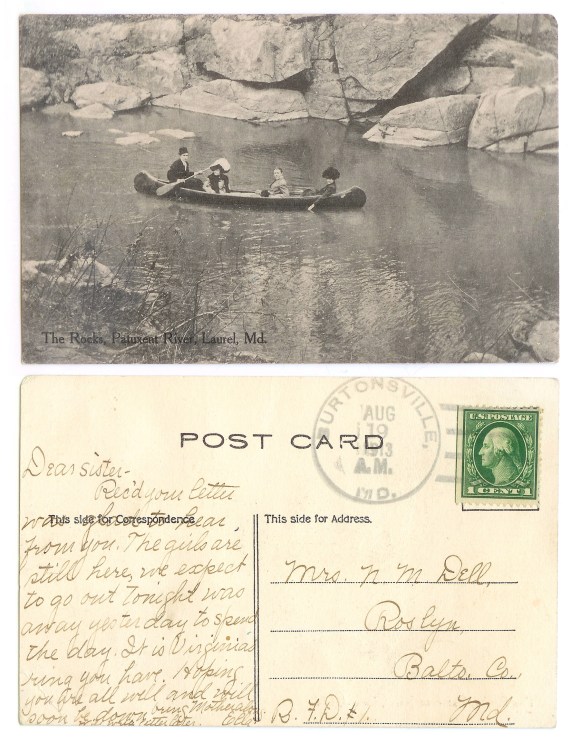 The Rocks, Patuxent River, Laurel, Md.
POST CARD
BURTONSVILLE,
AUG
19
1913
A.M.
MD.
U.S. POSTAGE
1 CENT 1
Dear sister-
Rec'd your letter
This side for Correspondence
was glad to hear
from you. The girls are
still here, we expect
to go out tonight was
away yesterday to spend
the day. It is Virginia's
ring you have. Hoping
you are all well and will
soon be down,
This side for Address.
Mrs. N M Dell,
Roslyn,
Balto. Co.,
Md.